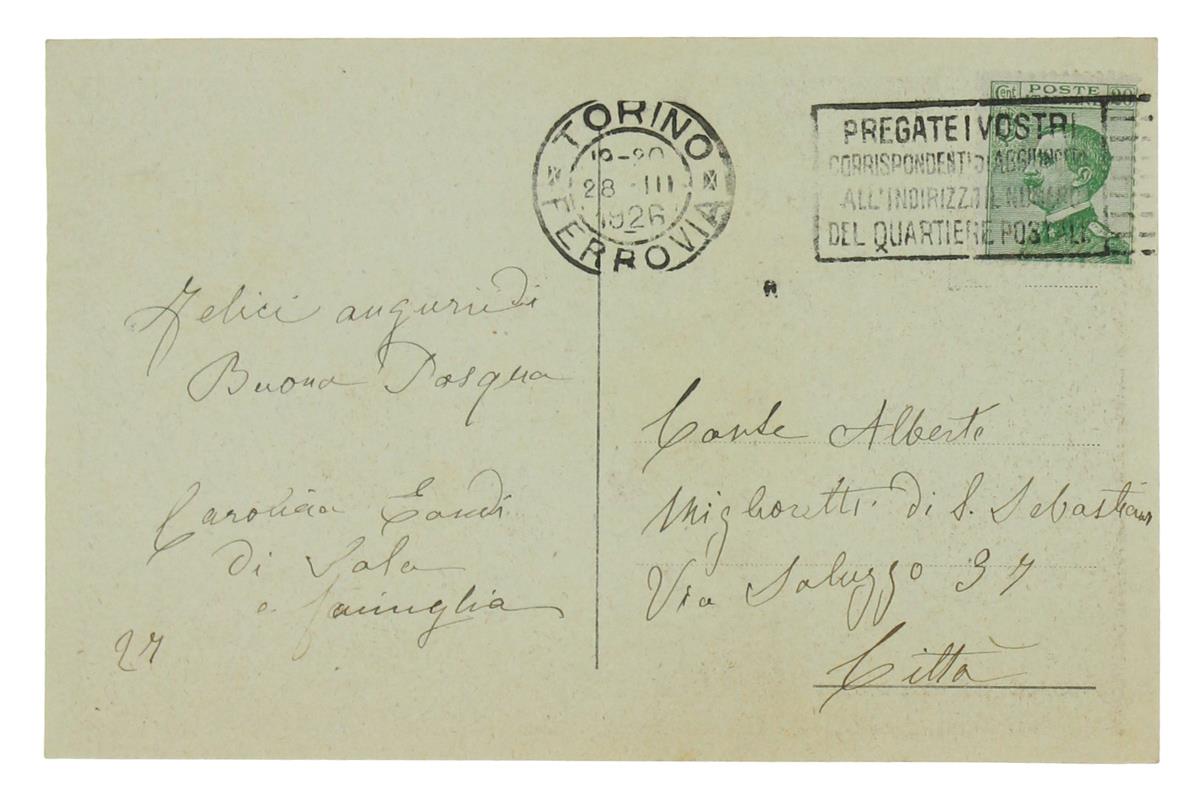 TORINO
19-20
28 III
1926
FERROVIA
PREGATE I VOSTRI
CORRISPONDENTI DI AGGIUNGERE
ALL'INDIRIZZO IL NUMERO
DEL QUARTIERE POSTALE
Cent POSTE 20
Felici auguri di
Buona Pasqua
Carolina Eandi
di Sala
e famiglia
27
Conte Alberto
Miglioretti di S. Sebastiano
Via Saluzzo 37
Città